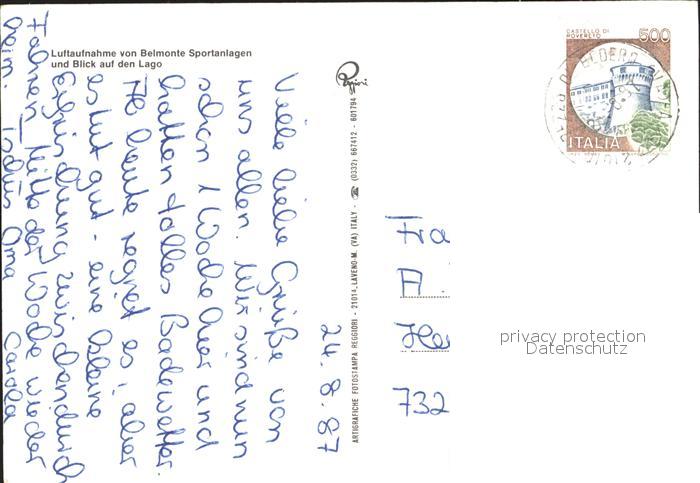 Luftaufnahme von Belmonte Sportanlagen
und Blick auf den Lago
24.8.87
Viele liebe Grüße von
uns allen. Wir sind nun
schon 1 Woche hier und
hatten tolles Badewetter.
Ab heute regnet es, aber
es tut gut - eine kleine
zwischendurch
Fahren Mitte der Woche wieder
heim. Oma Carola
Reggiori
ARTIGRAFICHE FOTOSTAMPA REGGIORI - 21014 LAVENO-M. (VA) ITALY - ☎ (0332) 667412 - 601794
CASTELLO DI
ROVERETO
500
ITALIA
Fra
A.
He
732
privacy protection
Datenschutz